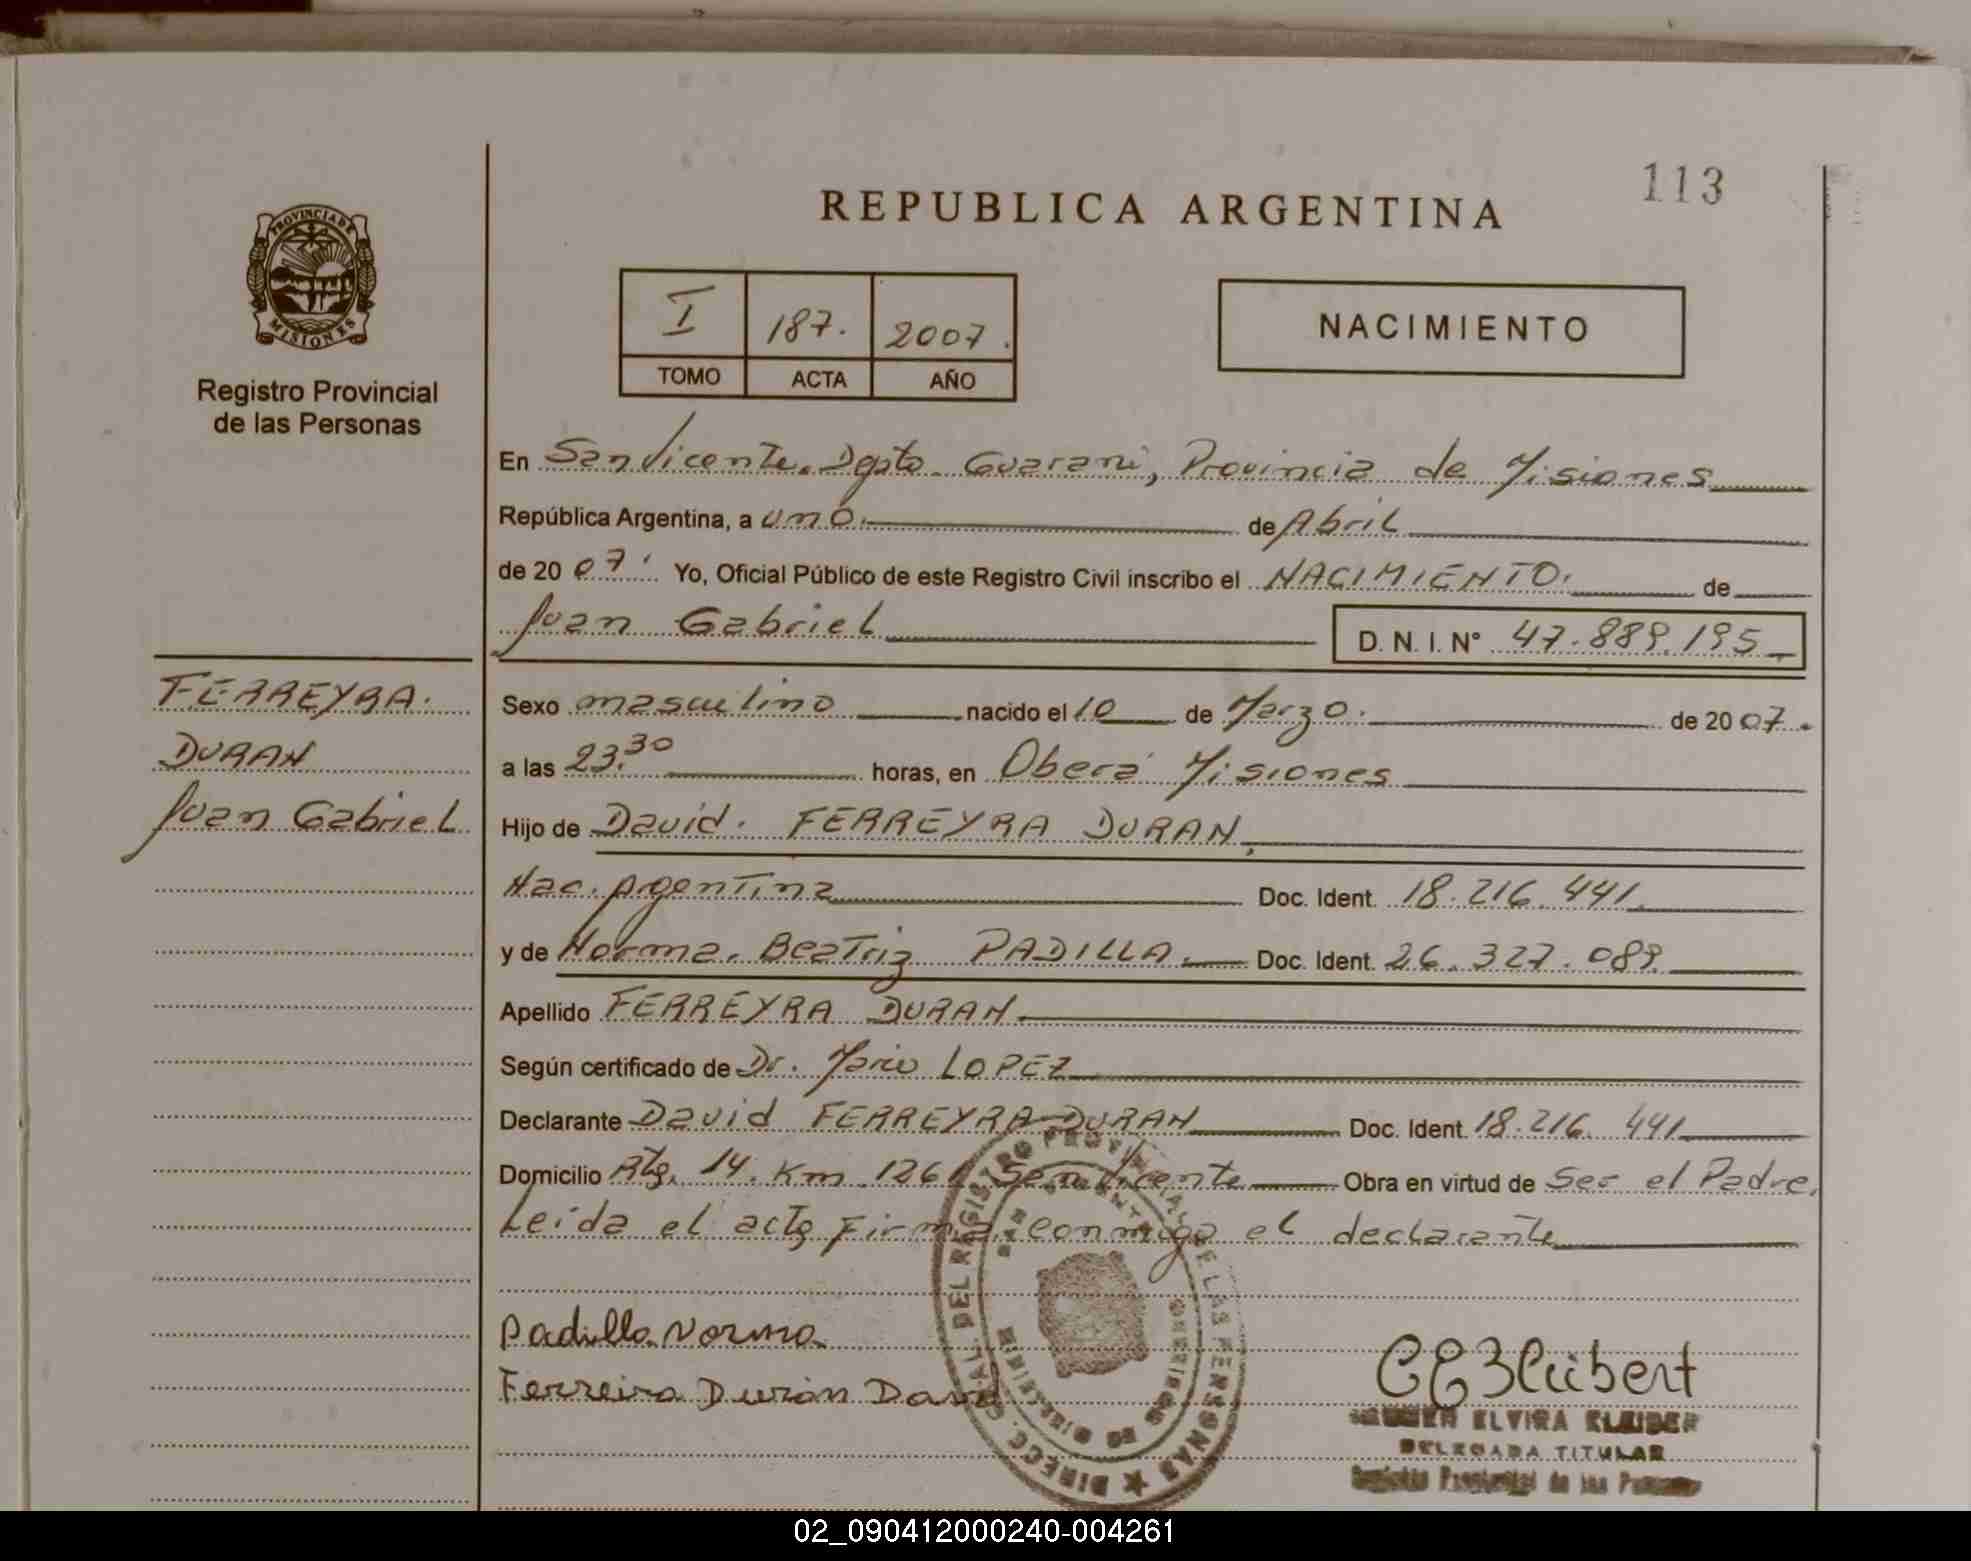 113
REPUBLICA ARGENTINA
PROVINCIA DE MISIONES
Registro Provincial
de las Personas
I 187. 2007.
TOMO ACTA AÑO
NACIMIENTO
En San Vicente. Dpto. Guarani, Provincia de Misiones
República Argentina, a uno. de Abril
de 20 07. Yo, Oficial Público de este Registro Civil inscribo el NACIMIENTO. de
Juan Gabriel D. N. I. N° 47.889.195
FERREYRA.
DURAN
Juan Gabriel
Sexo masculino nacido el 10 de Marzo. de 20 07.
a las 23.30 horas, en Oberá Misiones
Hijo de David. FERREYRA DURAN.
Nac. Argentina Doc. Ident. 18.216.441.
y de Norma. Beatriz PADILLA. Doc. Ident. 26.327.089.
Apellido FERREYRA DURAN.
Según certificado de Dr. Mario LOPEZ
Declarante David FERREYRA DURAN Doc. Ident. 18.216.441
Domicilio Rta. 14. Km. 1261 San Vicente Obra en virtud de Ser el Padre.
Leida el acta Firma conmigo el declarante
Padilla Norma
Ferreira Durán David
DIRECC. GRAL. DEL REGISTRO PROVINCIAL DE LAS PERSONAS
SAN VICENTE
MISIONES
ELVIRA
DELEGADA TITULAR
Registro Provincial de las Personas
02_090412000240-004261